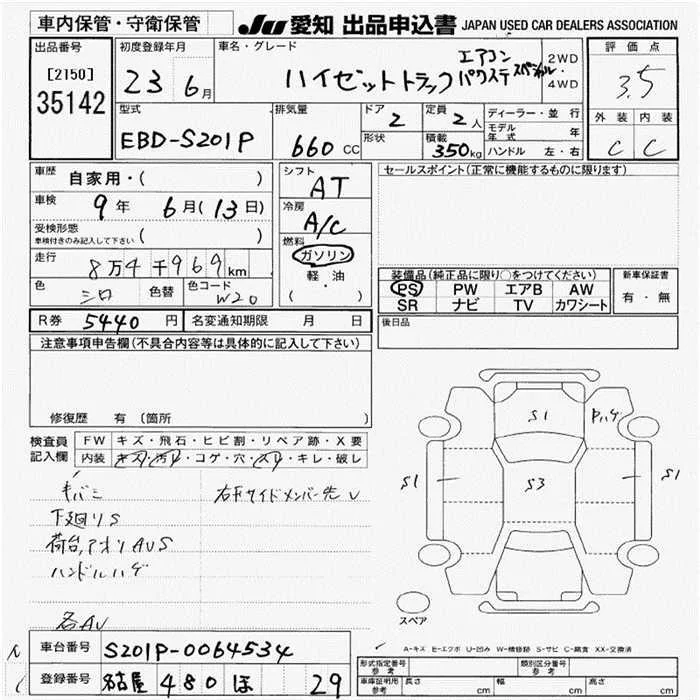 車内保管・守衛保管 JU 愛知 出品申込書 JAPAN USED CAR DEALERS ASSOCIATION
出品番号 初度登録年月 車名・グレード 評価点
[2150] 23 6月 ハイゼットトラック エアコン パワステ スペシャル 2WD・4WD 3.5
35142
型式 排気量 ドア 2 定員 2人 ディーラー・並行 外装 内装
EBD-S201P 660cc 形状 積載 350kg モデル年式 年 C C
ハンドル 左・右
車歴 自家用・( ) シフト AT セールスポイント(正常に機能するものに限ります)
車検 9年 6月(13日) 冷房 A/C
受検形態 ( )
車検付きのみ記入して下さい
燃料 ガソリン
走行 8万4千969km 軽・油
( )
装備品(純正品に限り○をつけてください) 新車保証書
PS PW エアB AW 有・無
SR ナビ TV カワシート
色 シロ 色替 色コード W20
R券 5440円 名変通知期限 月 日 後日品
注意事項申告欄(不具合内容等は具体的に記入して下さい)
修復歴 有(箇所 )
検査員記入欄 FW キズ・飛石・ヒビ割・リペア跡・X要
内装 キズ・汚れ・コゲ・穴・スレ・キレ・破レ
キバミ 右下サイドメンバー先 V
下廻りS
荷台,アオリAUS
ハンドルハゲ
各AU
S1 Pハゲ
S1 S3 S1
スペア
A-キズ E-エクボ U-凹み W-補修跡 S-サビ C-腐食 XX-交換済
車台番号 S201P-0064534
登録番号 名古屋 480 ほ 29
形式指定番号 参考 類別区分番号 参考
車庫証明用 参考 長さ cm 幅 cm 高さ cm